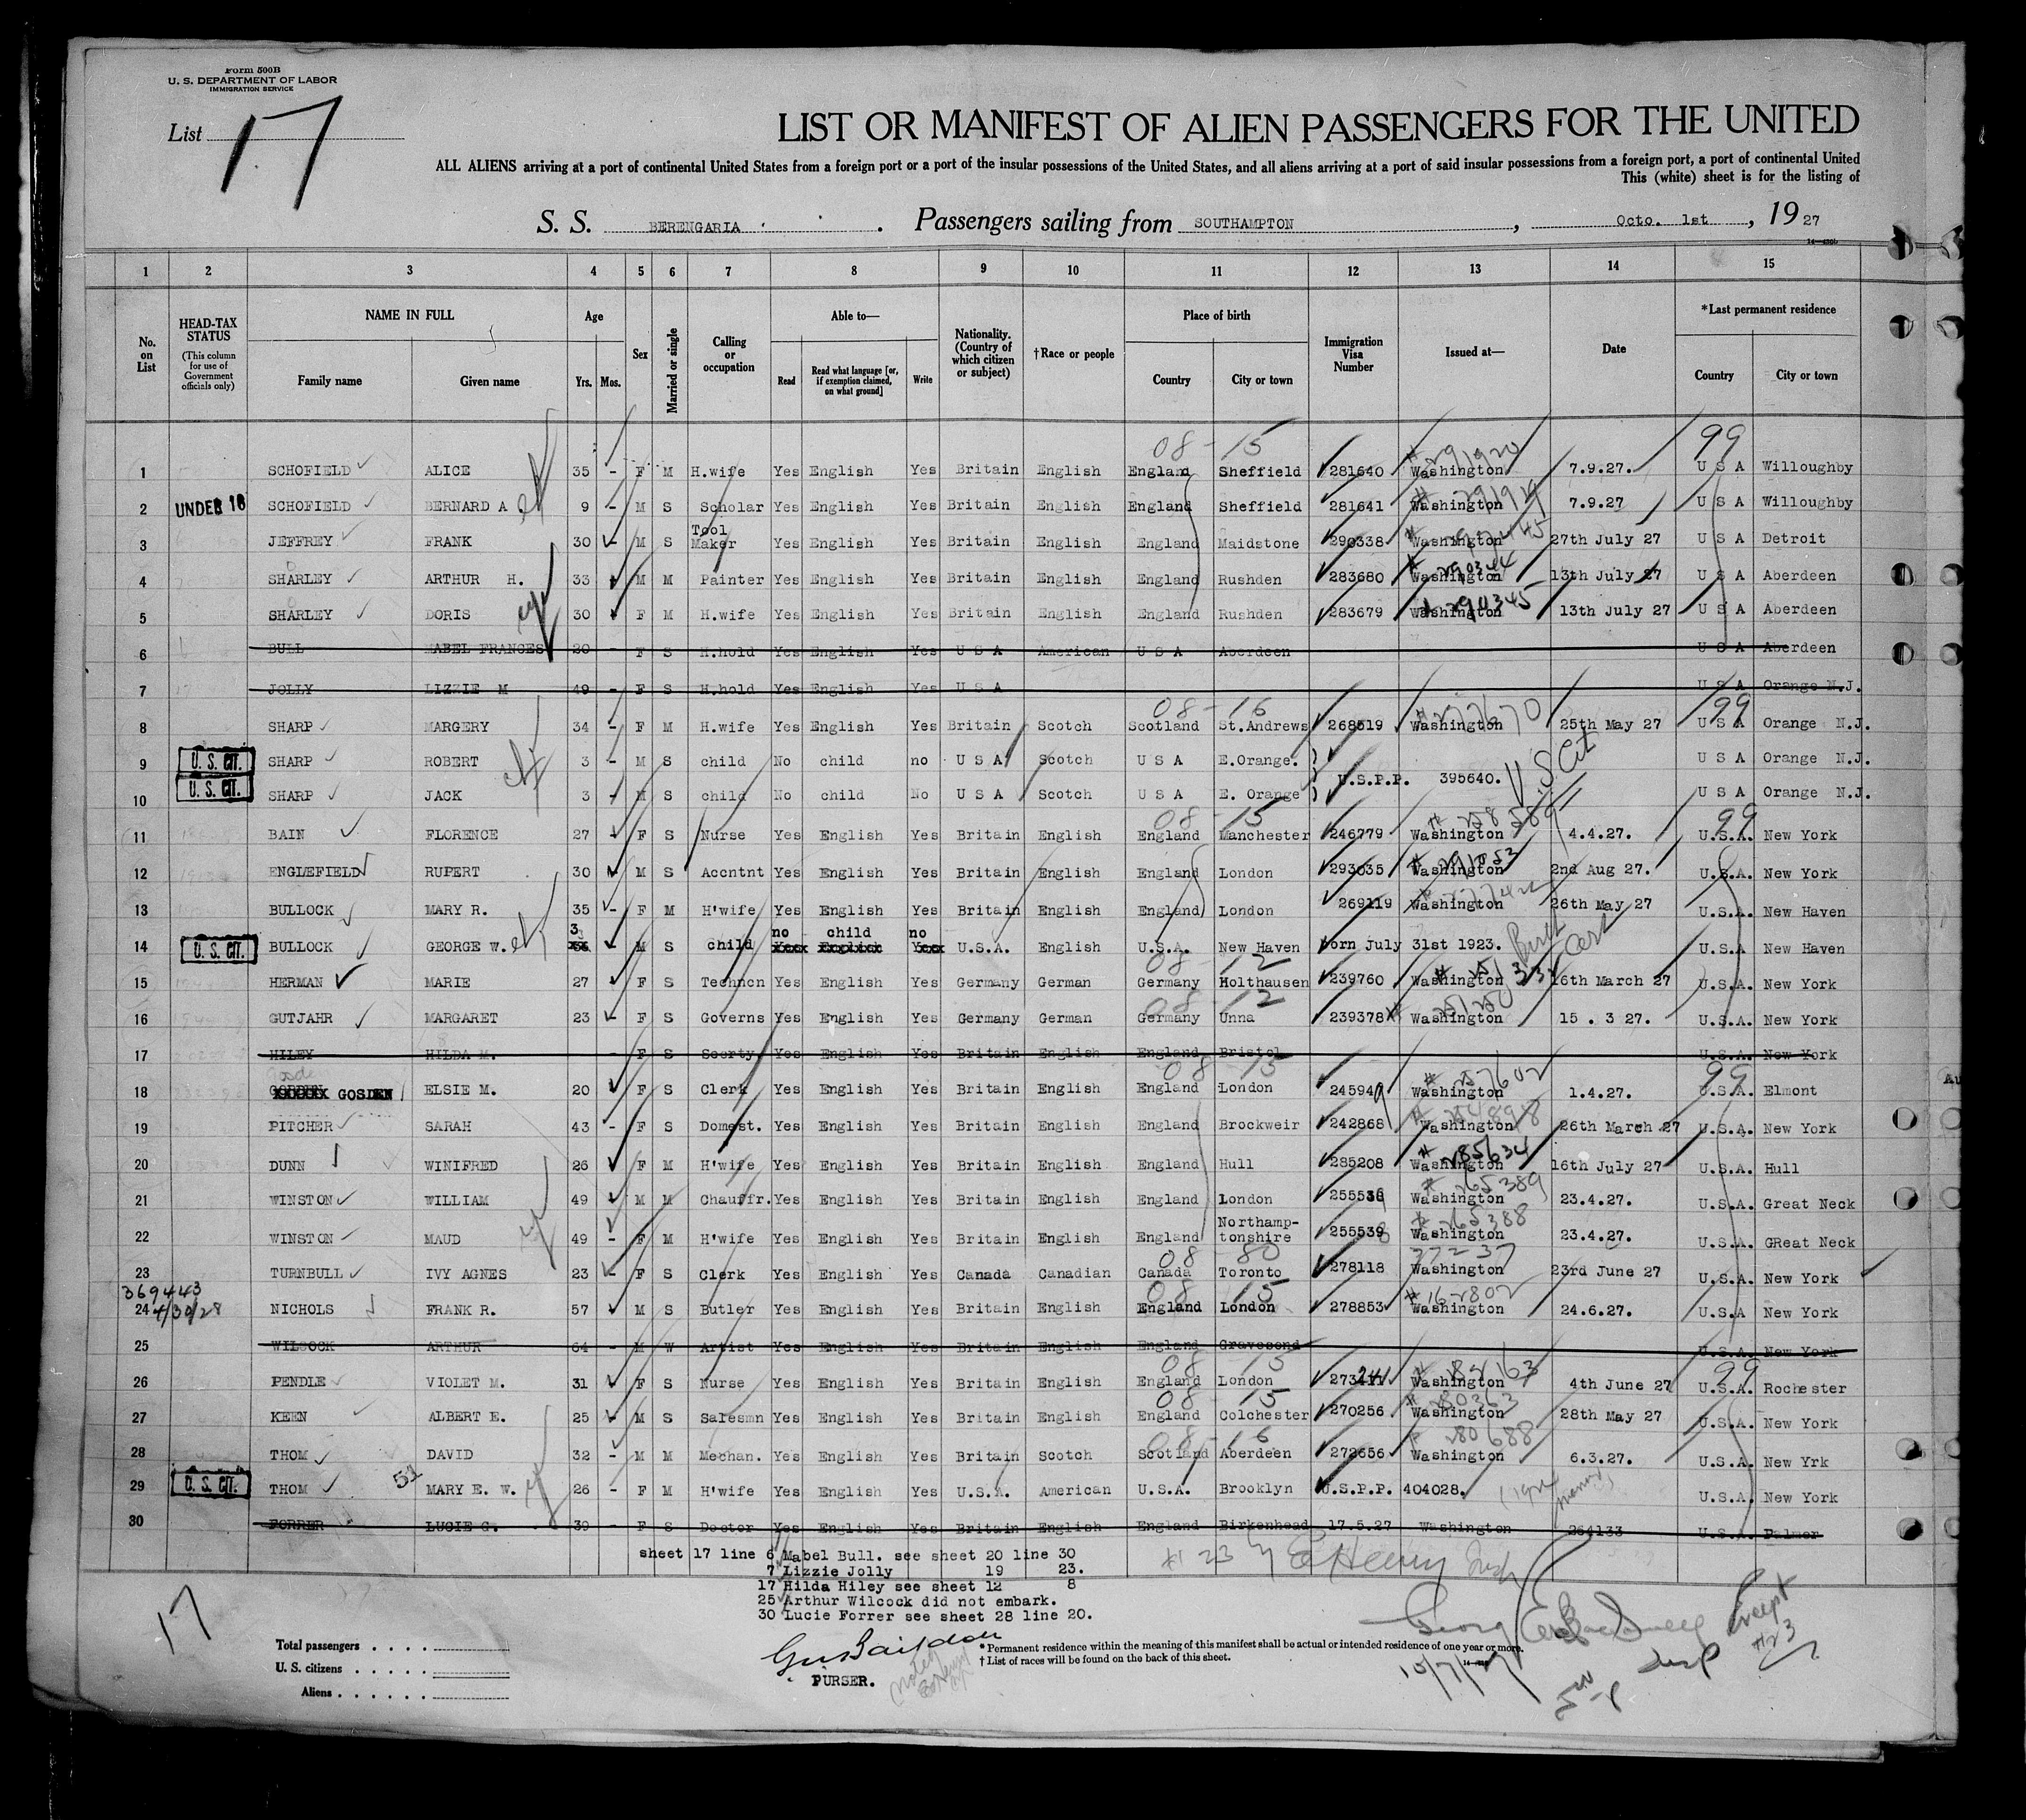 Form 500B
U. S. DEPARTMENT OF LABOR
IMMIGRATION SERVICE
List 17
LIST OR MANIFEST OF ALIEN PASSENGERS FOR THE UNITED
ALL ALIENS arriving at a port of continental United States from a foreign port or a port of the insular possessions of the United States, and all aliens arriving at a port of said insular possessions from a foreign port, a port of continental United
This (white) sheet is for the listing of
S. S. BERENGARIA . Passengers sailing from SOUTHAMPTON , Octo. 1st , 19 27
1 2 3 4 5 6 7 8 9 10 11 12 13 14 15
No. on List HEAD-TAX STATUS (This column for use of Government officials only) NAME IN FULL Family name Given name Age Yrs. Mos. Sex Married or single Calling or occupation Able to— Read Read what language [or, if exemption claimed, on what ground] Write Nationality. (Country of which citizen or subject) †Race or people Place of birth Country City or town Immigration Visa Number Issued at— Date *Last permanent residence Country City or town
08 - 15 99
1 SCHOFIELD ALICE 35 - F M H.wife Yes English Yes Britain English England Sheffield 281640 Washington 7.9.27. U S A Willoughby
2 UNDER 16 SCHOFIELD BERNARD A 9 - M S Scholar Yes English Yes Britain English England Sheffield 281641 Washington 7.9.27 U S A Willoughby
3 JEFFREY FRANK 30 - M S Tool Maker Yes English Yes Britain English England Maidstone 290338 Washington 27th July 27 U S A Detroit
4 SHARLEY ARTHUR H. 33 M M Painter Yes English Yes Britain English England Rushden 283680 Washington 13th July 27 U S A Aberdeen
5 SHARLEY DORIS 30 F M H.wife Yes English Yes Britain English England Rushden 283679 Washington 290345 13th July 27 U S A Aberdeen
6 BULL MABEL FRANCES 20 - F S H.hold Yes English Yes U S A American U S A Aberdeen U S A Aberdeen
7 JOLLY LIZZIE M 49 - F S H.hold Yes English Yes U S A U S A Orange N.J.
08 - 16 99
8 SHARP MARGERY 34 - F M H.wife Yes English Yes Britain Scotch Scotland St.Andrews 268519 Washington 25th May 27 U S A Orange N.J.
9 U. S. CIT. SHARP ROBERT 3 - M S child No child no U S A Scotch U S A E.Orange. U S A Orange N.J.
U.S.P.P. 395640. U S Cit
10 U. S. CIT. SHARP JACK 3 - M S child No child No U S A Scotch U S A E. Orange U S A Orange N.J.
08 - 15 99
11 BAIN FLORENCE 27 F S Nurse Yes English Yes Britain English England Manchester 246779 Washington 4.4.27. U.S.A. New York
12 ENGLEFIELD RUPERT 30 M S Accntnt Yes English Yes Britain English England London 293035 Washington 2nd Aug 27. U.S.A. New York
13 BULLOCK MARY R. 35 - F M H'wife Yes English Yes Britain English England London 269119 Washington 26th May 27 U.S.A. New Haven
14 U. S. CIT. BULLOCK GEORGE W. 3 M S child no child no U.S.A. English U.S.A. New Haven born July 31st 1923. Birth Cert U.S.A New Haven
08 - 12
15 HERMAN MARIE 27 F S Techncn Yes English Yes Germany German Germany Holthausen 239760 Washington 16th March 27 U.S.A. New York
08 - 12
16 GUTJAHR MARGARET 23 - F S Governs Yes English Yes Germany German Germany Unna 239378 Washington 15 . 3 27. U.S.A. New York
17 HILEY HILDA M. F S Secrty Yes English Yes Britain English England Bristol U.S.A. New York
08 - 15 99
18 GOSDEN ELSIE M. 20 F S Clerk Yes English Yes Britain English England London 245949 Washington 1.4.27. U.S.A. Elmont
19 PITCHER SARAH 43 - F S Domest. Yes English Yes Britain English England Brockweir 242868 Washington 26th March 27 U.S.A. New York
20 DUNN WINIFRED 26 F M H'wife Yes English Yes Britain English England Hull 285208 Washington 16th July 27 U.S.A. Hull
21 WINSTON WILLIAM 49 M M Chauffr. Yes English Yes Britain English England London 255536 Washington 23.4.27. U.S.A. Great Neck
22 WINSTON MAUD 49 - F M H'wife Yes English Yes Britain English England Northamp- tonshire 255539 Washington 23.4.27. U.S.A. GReat Neck
08 - 80
23 TURNBULL IVY AGNES 23 - F S Clerk Yes English Yes Canada Canadian Canada Toronto 278118 Washington 23rd June 27 U.S.A. New York
369443 08 15
24 4/30/28 NICHOLS FRANK R. 57 M S Butler Yes English Yes Britain English England London 278853 Washington 24.6.27. U.S.A New York
25 WILCOCK ARTHUR 64 - M W Artist Yes English Yes Britain English England Gravesend U.S.A. New York
08 - 15 99
26 PENDLE VIOLET M. 31 F S Nurse Yes English Yes Britain English England London Washington 4th June 27 U.S.A. Rochester
08 - 15
27 KEEN ALBERT E. 25 M S Salesmn Yes English Yes Britain English England Colchester 270256 Washington 28th May 27 U.S.A. New York
08 - 16
28 THOM DAVID 32 - M M Mechan. Yes English Yes Britain Scotch Scotland Aberdeen 272656 Washington 6.3.27. U.S.A. New Yrk
29 U. S. CIT. THOM MARY E. W. 26 - F M H'wife Yes English Yes U.S.A. American U.S.A. Brooklyn U.S.P.P. 404028. U.S.A. New York
30 FORRER LUCIE G. 39 - F S Doctor Yes English Yes Britain English England Birkenhead 17.5.27 Washington 264133 U.S.A. Palmer
sheet 17 line 6 Mabel Bull. see sheet 20 line 30
7 Lizzie Jolly 19 23.
17 Hilda Hiley see sheet 12 8
25 Arthur Wilcock did not embark.
30 Lucie Forrer see sheet 28 line 20.
17
Total passengers . . . .
U. S. citizens . . . . .
Aliens . . . . . .
PURSER.
*Permanent residence within the meaning of this manifest shall be actual or intended residence of one year or more.
† List of races will be found on the back of this sheet.
Except #23
10/7/27